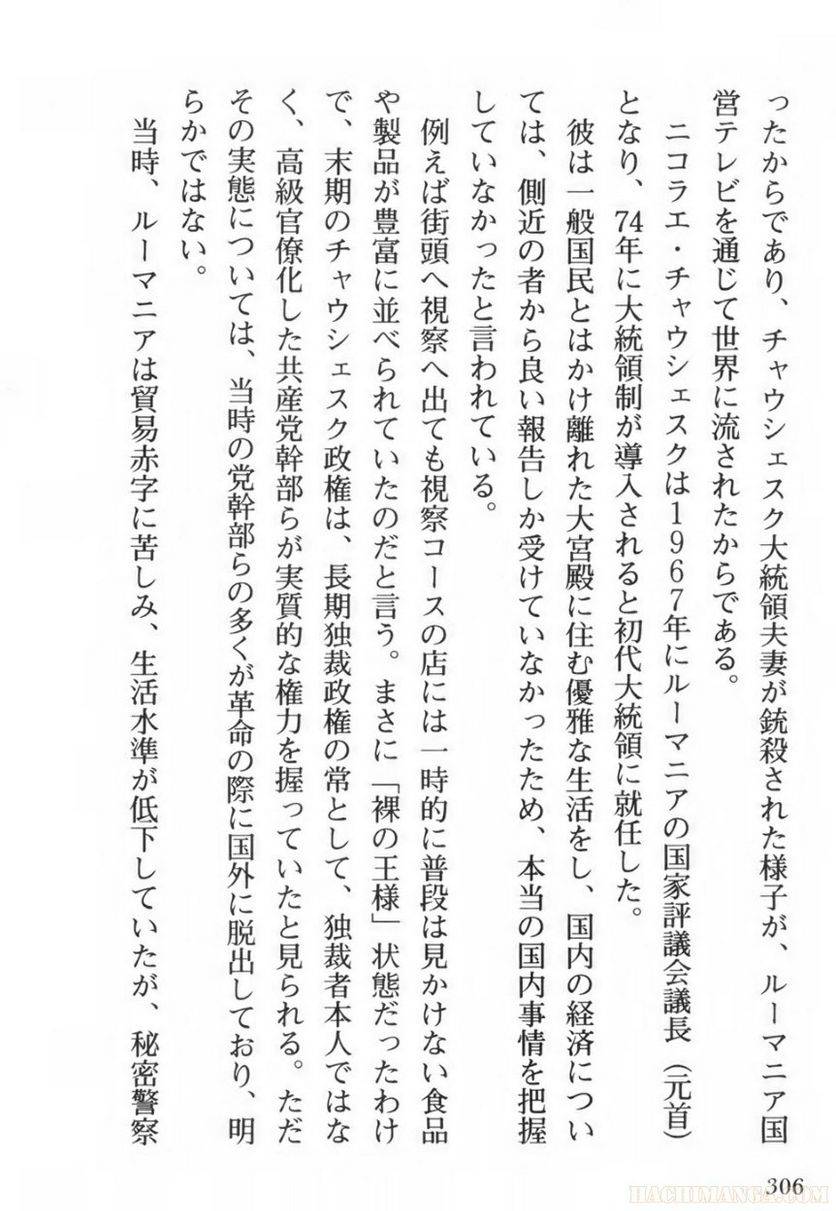 ったからであり、チャウシェスク大統領夫妻が銃殺された様子が、ルーマニア国
営テレビを通じて世界に流されたからである。
ニコラエ・チャウシェスクは1967年にルーマニアの国家評議会議長（元首）
となり、74年に大統領制が導入されると初代大統領に就任した。
彼は一般国民とはかけ離れた大宮殿に住む優雅な生活をし、国内の経済につい
ては、側近の者から良い報告しか受けていなかったため、本当の国内事情を把握
していなかったと言われている。
例えば街頭へ視察へ出ても視察コースの店には一時的に普段は見かけない食品
や製品が豊富に並べられていたのだと言う。まさに「裸の王様」状態だったわけ
で、末期のチャウシェスク政権は、長期独裁政権の常として、独裁者本人ではな
く、高級官僚化した共産党幹部らが実質的な権力を握っていたと見られる。ただ
その実態については、当時の党幹部らの多くが革命の際に国外に脱出しており、明
らかではない。
当時、ルーマニアは貿易赤字に苦しみ、生活水準が低下していたが、秘密警察
306
HACHIMANGA.COM